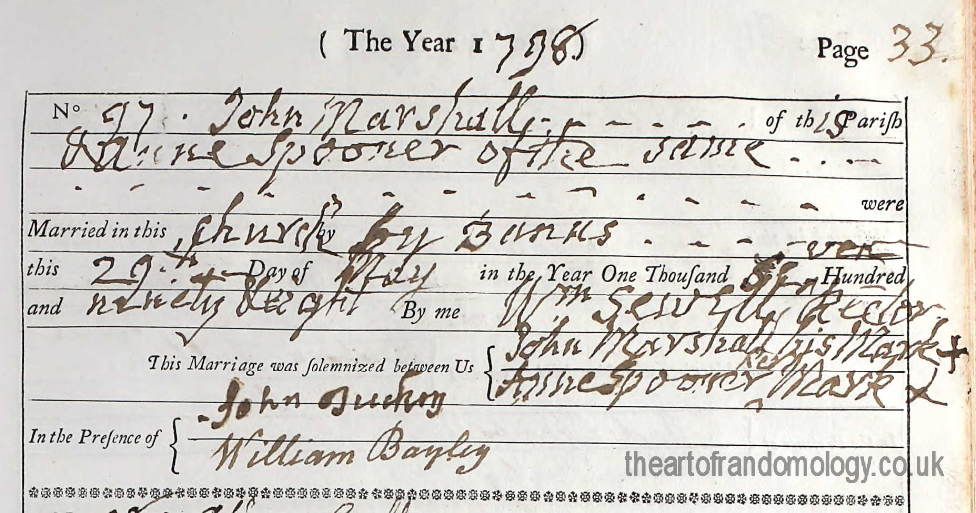 ( The Year 1798 )
Page 33.
No 97. John Marshall of this Parish
& Anne Spooner of the same
were
Married in this Church by by Banns
this 29.th Day of May in the Year One Thousand Seven Hundred
and ninety & eight By me Wm Sewell Rector.
This Marriage was solemnized between Us { John Marshall his Mark +
Anne Spooner her Mark X
In the Presence of { John
William Bayley
theartofrandomology.co.uk